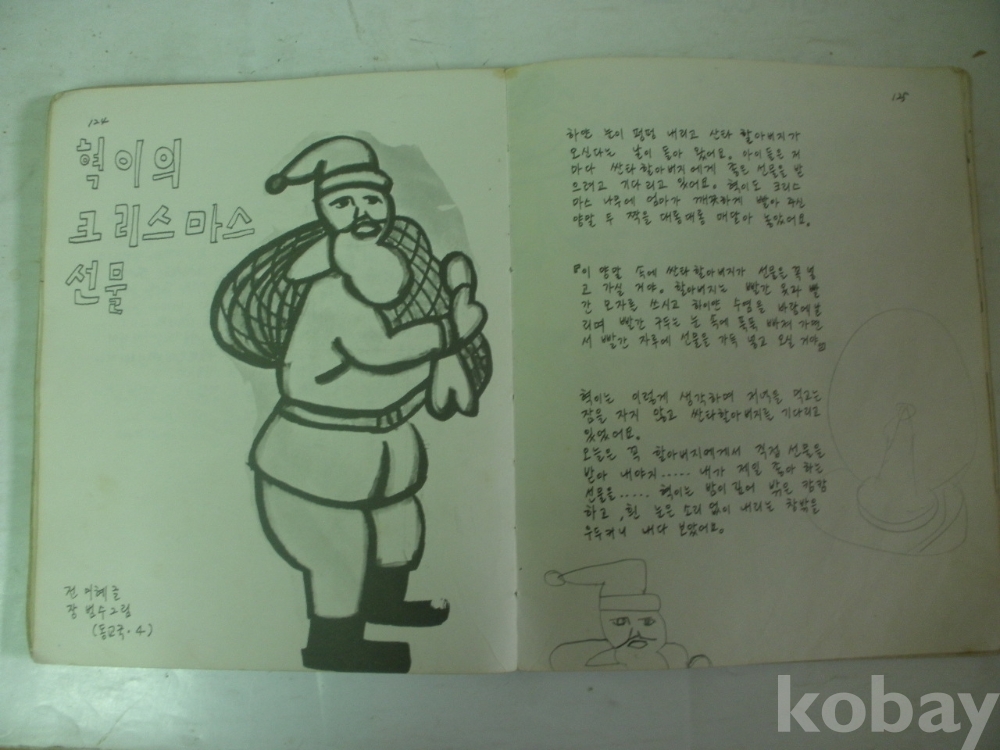 124
혁이의
크리스마스
선물
전 혜 글
장 범수 그림
(동교국·4)
125
하얀 눈이 펑펑 내리고 산타 할아버지가
오신다는 날이 돌아 왔어요. 아이들은 저
마다 싼타할아버지에게 좋은 선물을 받
으려고 기다리고 있어요. 혁이도 크리스
마스 나무에 엄마가 깨끗하게 빨아 주신
양말 두 짝을 대롱대롱 매달아 놓았어요.
『이 양말 속에 싼타할아버지가 선물을 꼭 넣
고 가실 거야. 할아버지는 빨간 옷과 빨
간 모자를 쓰시고 하이얀 수염을 바람에 날
리며 빨간 구두는 눈 속에 푹푹 빠져 가면
서 빨간 자루에 선물을 가득 넣고 오실 거야』
혁이는 이렇게 생각하며 저녁을 먹고는
잠을 자지 않고 싼타할아버지를 기다리고
있었어요.
오늘은 꼭 할아버지에게서 직접 선물을
받아 내야지..... 내가 제일 좋아 하는
선물을..... 혁이는 밤이 깊어 밖은 캄캄
하고, 흰 눈은 소리 없이 내리는 창밖을
우두커니 내다 보았어요.
kobay